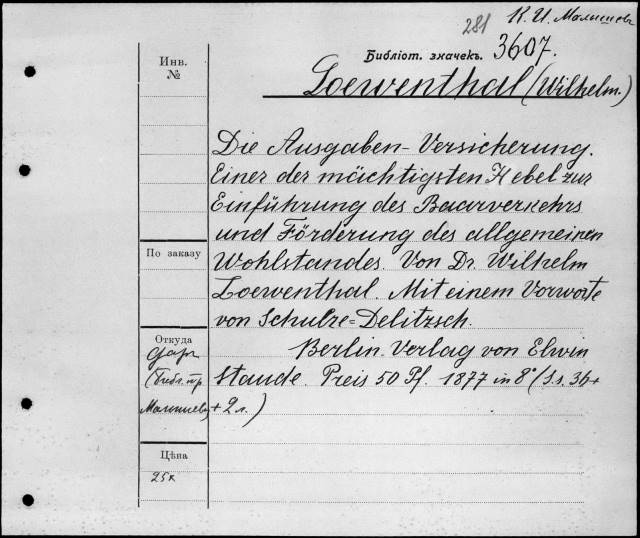 281 К. И. Малышевъ
Библіот. значекъ. 3607.
Инв.
№
Loewenthal (Wilhelm.)
Die Ausgaben-Versicherung.
Einer der mächtigsten Hebel zur
Einführung des Baarverkehrs
und Förderung des allgemeinen
По заказу
Wohlstandes. Von Dr. Wilhelm
Loewenthal. Mit einem Vorworte
von Schulze=Delitzsch.
Откуда
даръ
Berlin. Verlag von Elwin
(библ. пр.
Staude. Preis 50 Pf. 1877 in 8° (S.s. 36 +
Малышева
+ 2 л.)
Цѣна
25 к